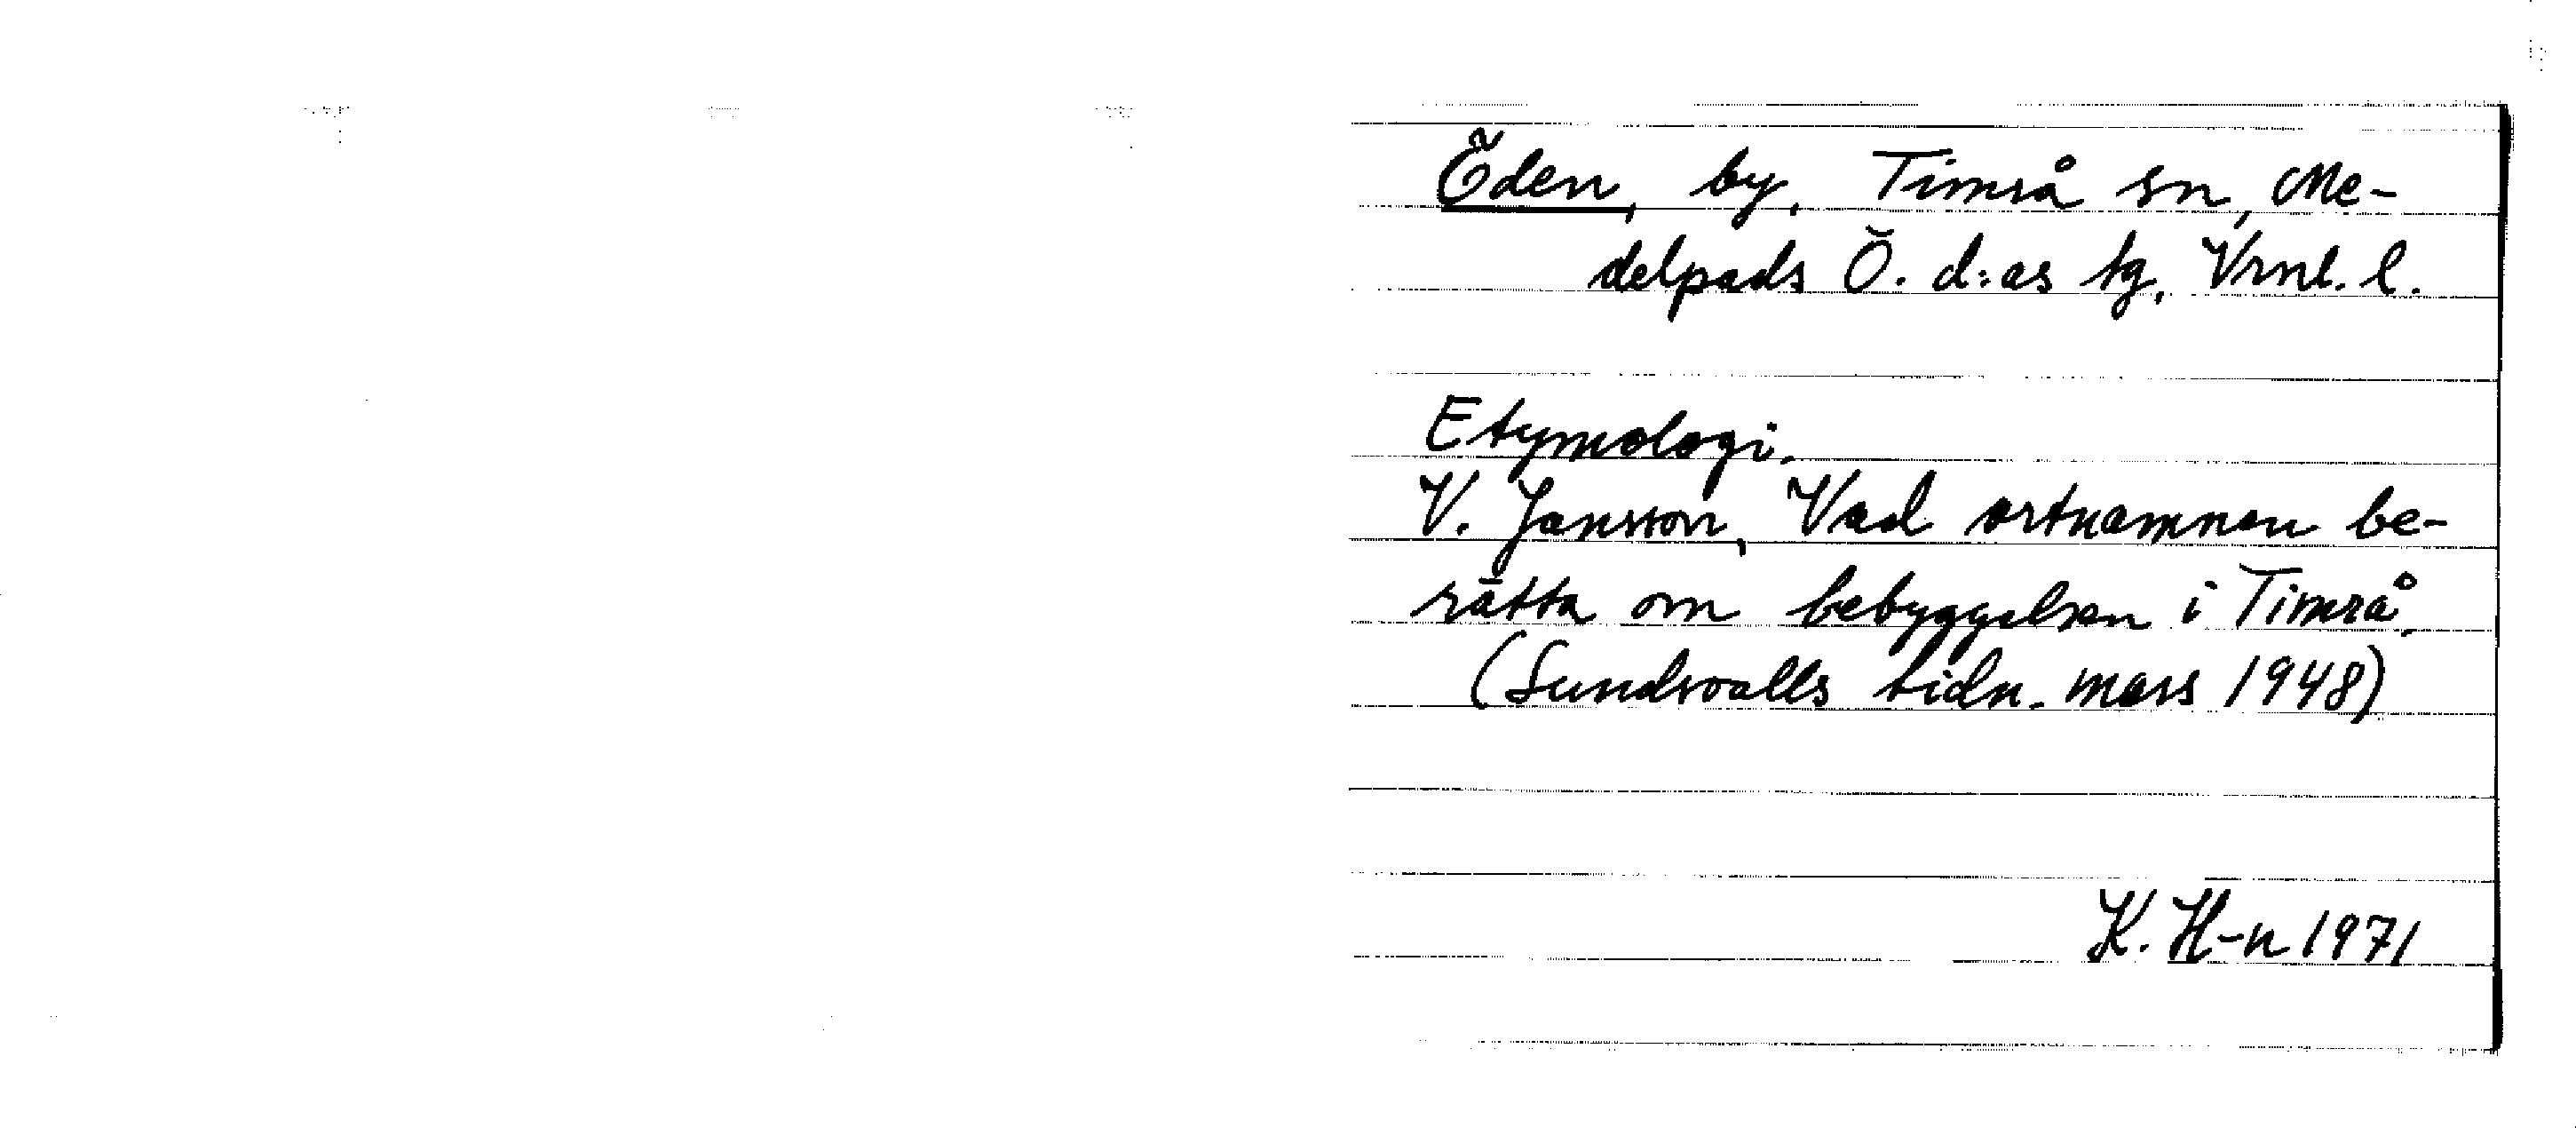 Öden, by, Timrå sn, Me-
delpads Ö. d:as tg, Vrnl. l.
Etymologi.
V. Jansson, Vad ortnamnen be-
rätta om bebyggelsen i Timrå.
(Sundsvalls tidn. mars 1948)
K. H-n 1971